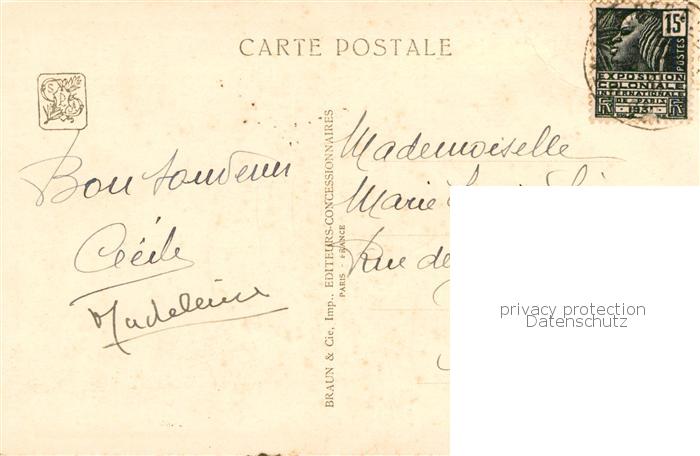 CARTE POSTALE
15c
POSTES
EXPOSITION
COLONIALE
INTERNATIONALE
DE PARIS
1931
RF RF
Bon souvenir
Cécile
Madeleine
BRAUN & Cie, Imp., EDITEURS-CONCESSIONNAIRES
PARIS - FRANCE
Mademoiselle
Marie
Rue de
privacy protection
Datenschutz